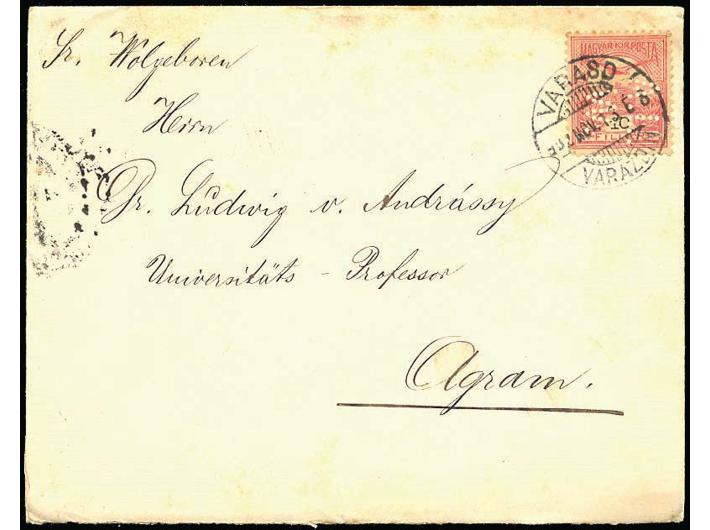 Sr. Wolgeboren
Herrn
Dr. Ludwig v. Andrássy
Universitäts - Professor
Agram.
MAGYAR KIR. POSTA
VARASD
NOV.
VARAZD